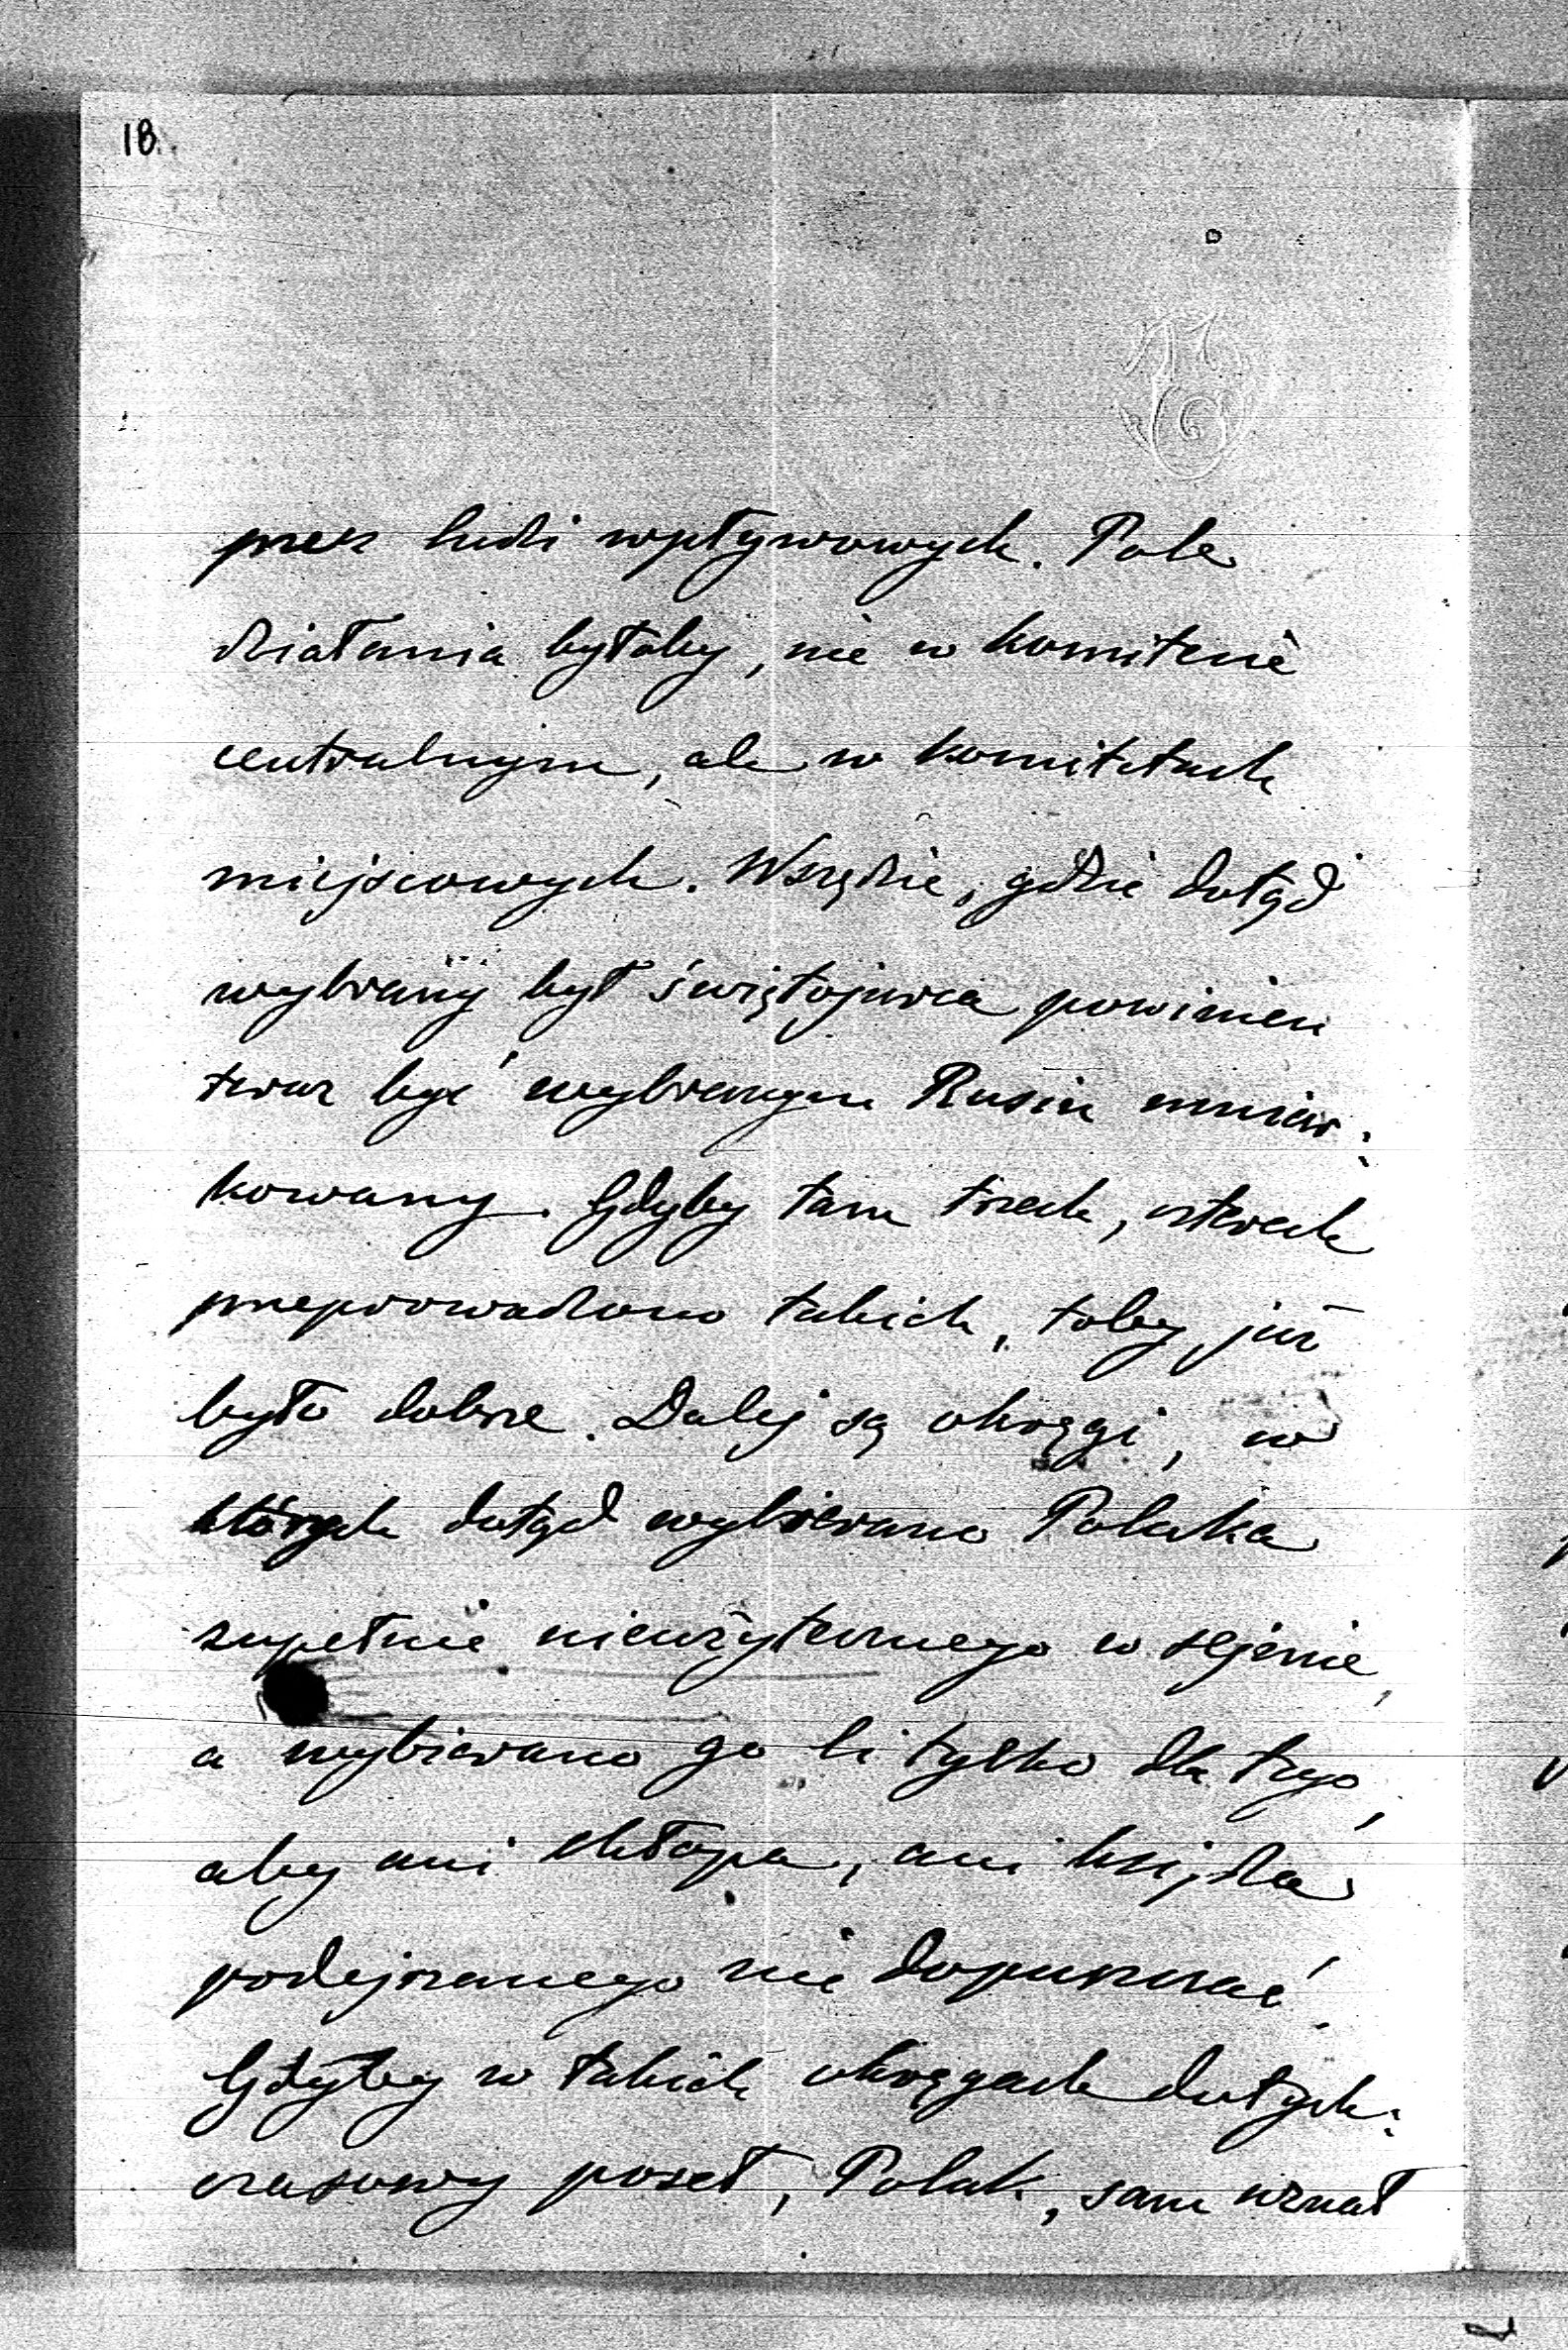 18.
przez ludzi wpływowych. Pole
działania byłoby, nie w komitecie
centralnym, ale w komitetach
miejscowych. Wszędzie, gdzie dotąd
wybrany był świętojurca powinien
teraz być wybranym Rusin umiar:
kowany. Gdyby tam trzech, czterech
przeprowadzono takich, toby już
było dobrze. Dalej są okręgi, w
których dotąd wybierano Polaka
zupełnie nieużytecznego w sejmie,
a wybierano go li tylko dla tego,
aby ani chłopa, ani księdza
podejrzanego nie dopuszczać.
Gdyby w takich okręgach dotych:
czasowy poseł, Polak, sam uznał